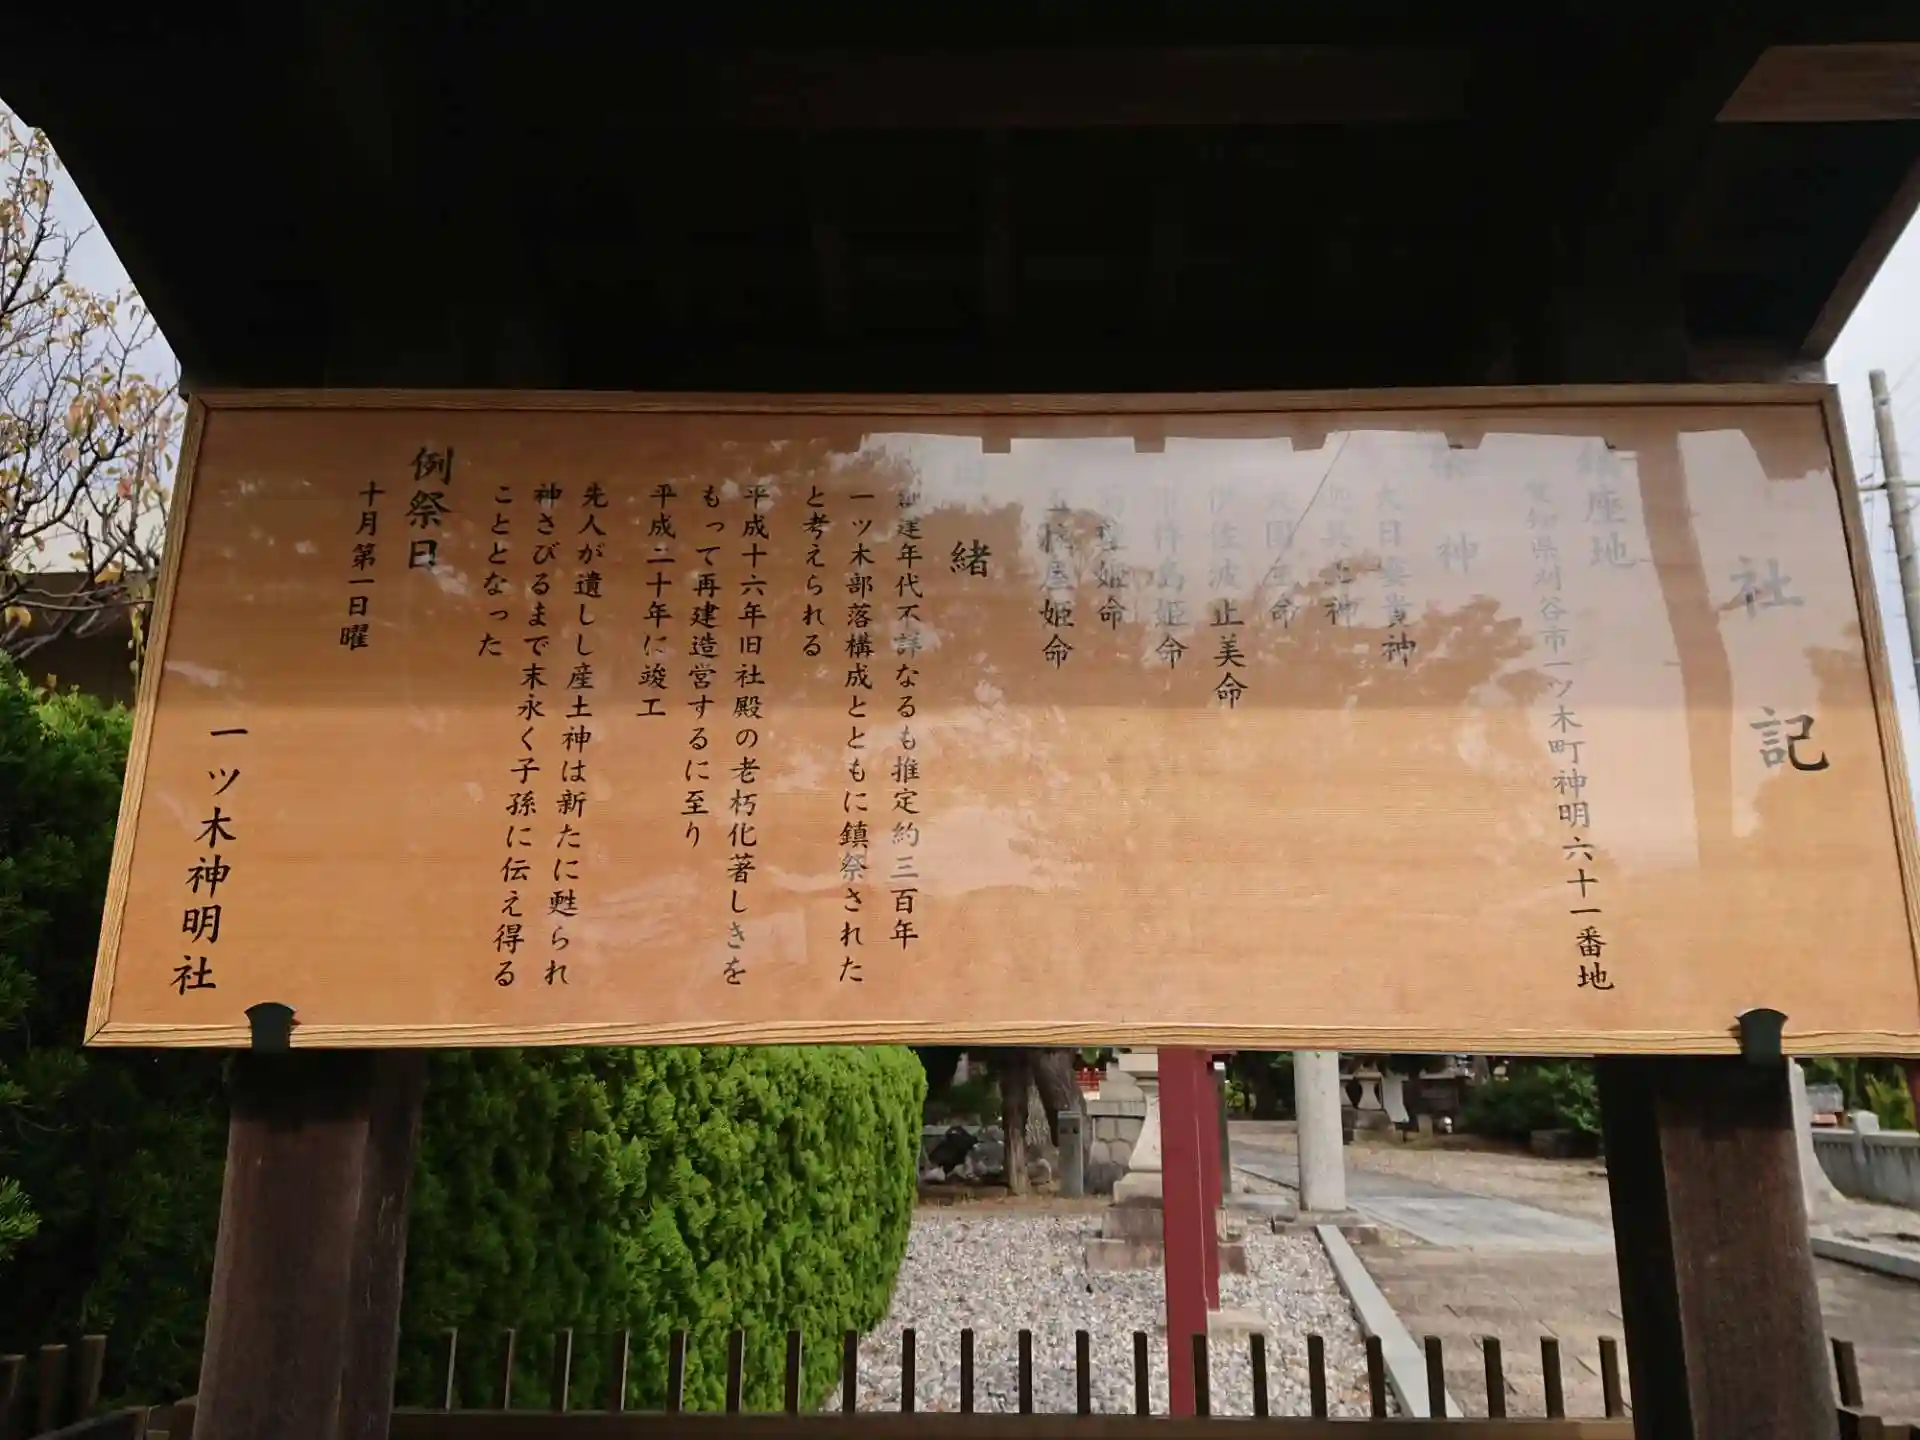 社記
鎮座地
愛知県刈谷市一ツ木町神明六十一番地
祭神
大日孁貴神
神
大国主命
伊佐波止美命
市杵島姫命
姫命
玉櫛屋姫命
由緒
創建年代不詳なるも推定約三百年
一ツ木部落構成とともに鎮祭された
と考えられる
平成十六年旧社殿の老朽化著しきを
もって再建造営するに至り
平成二十年に竣工
先人が遺しし産土神は新たに甦られ
神さびるまで末永く子孫に伝え得る
こととなった
例祭日
十月第一日曜
一ツ木神明社